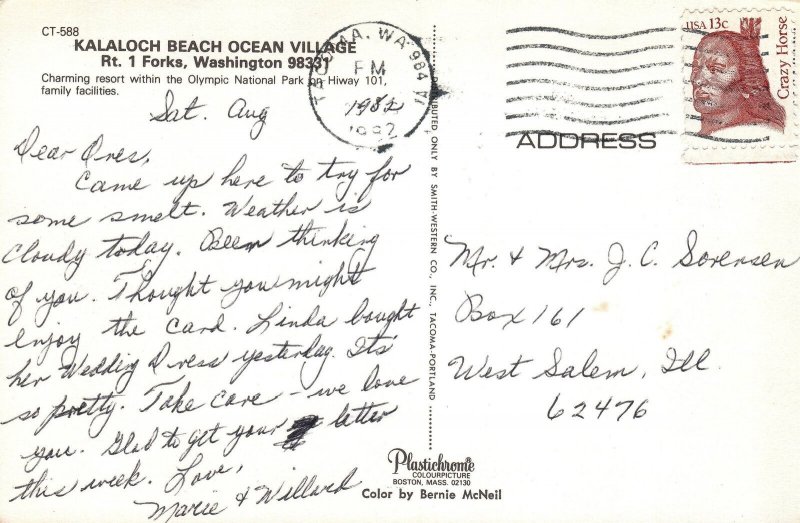 CT-588
KALALOCH BEACH OCEAN VILLAGE
Rt. 1 Forks, Washington 98331
Charming resort within the Olympic National Park on Hiway 101,
family facilities.
TACOMA, WA 984
PM
1982
1982
USA 13c
Crazy Horse
ADDRESS
Sat. Aug
Dear Ones,
Came up here to try for
some smelt. Weather is
cloudy today. Been thinking
of you. Thought you might
enjoy the card. Linda bought
her Wedding Dress yesterday. Its'
so pretty. Take care - we love
you. Glad to get your letter
this week. Love,
Marie & Willard
DISTRIBUTED ONLY BY SMITH-WESTERN CO., INC. TACOMA-PORTLAND
Mr. & Mrs. J. C. Sorensen
Box 161
West Salem, Ill.
62476
Plastichrome®
COLOURPICTURE
BOSTON, MASS. 02130
Color by Bernie McNeil